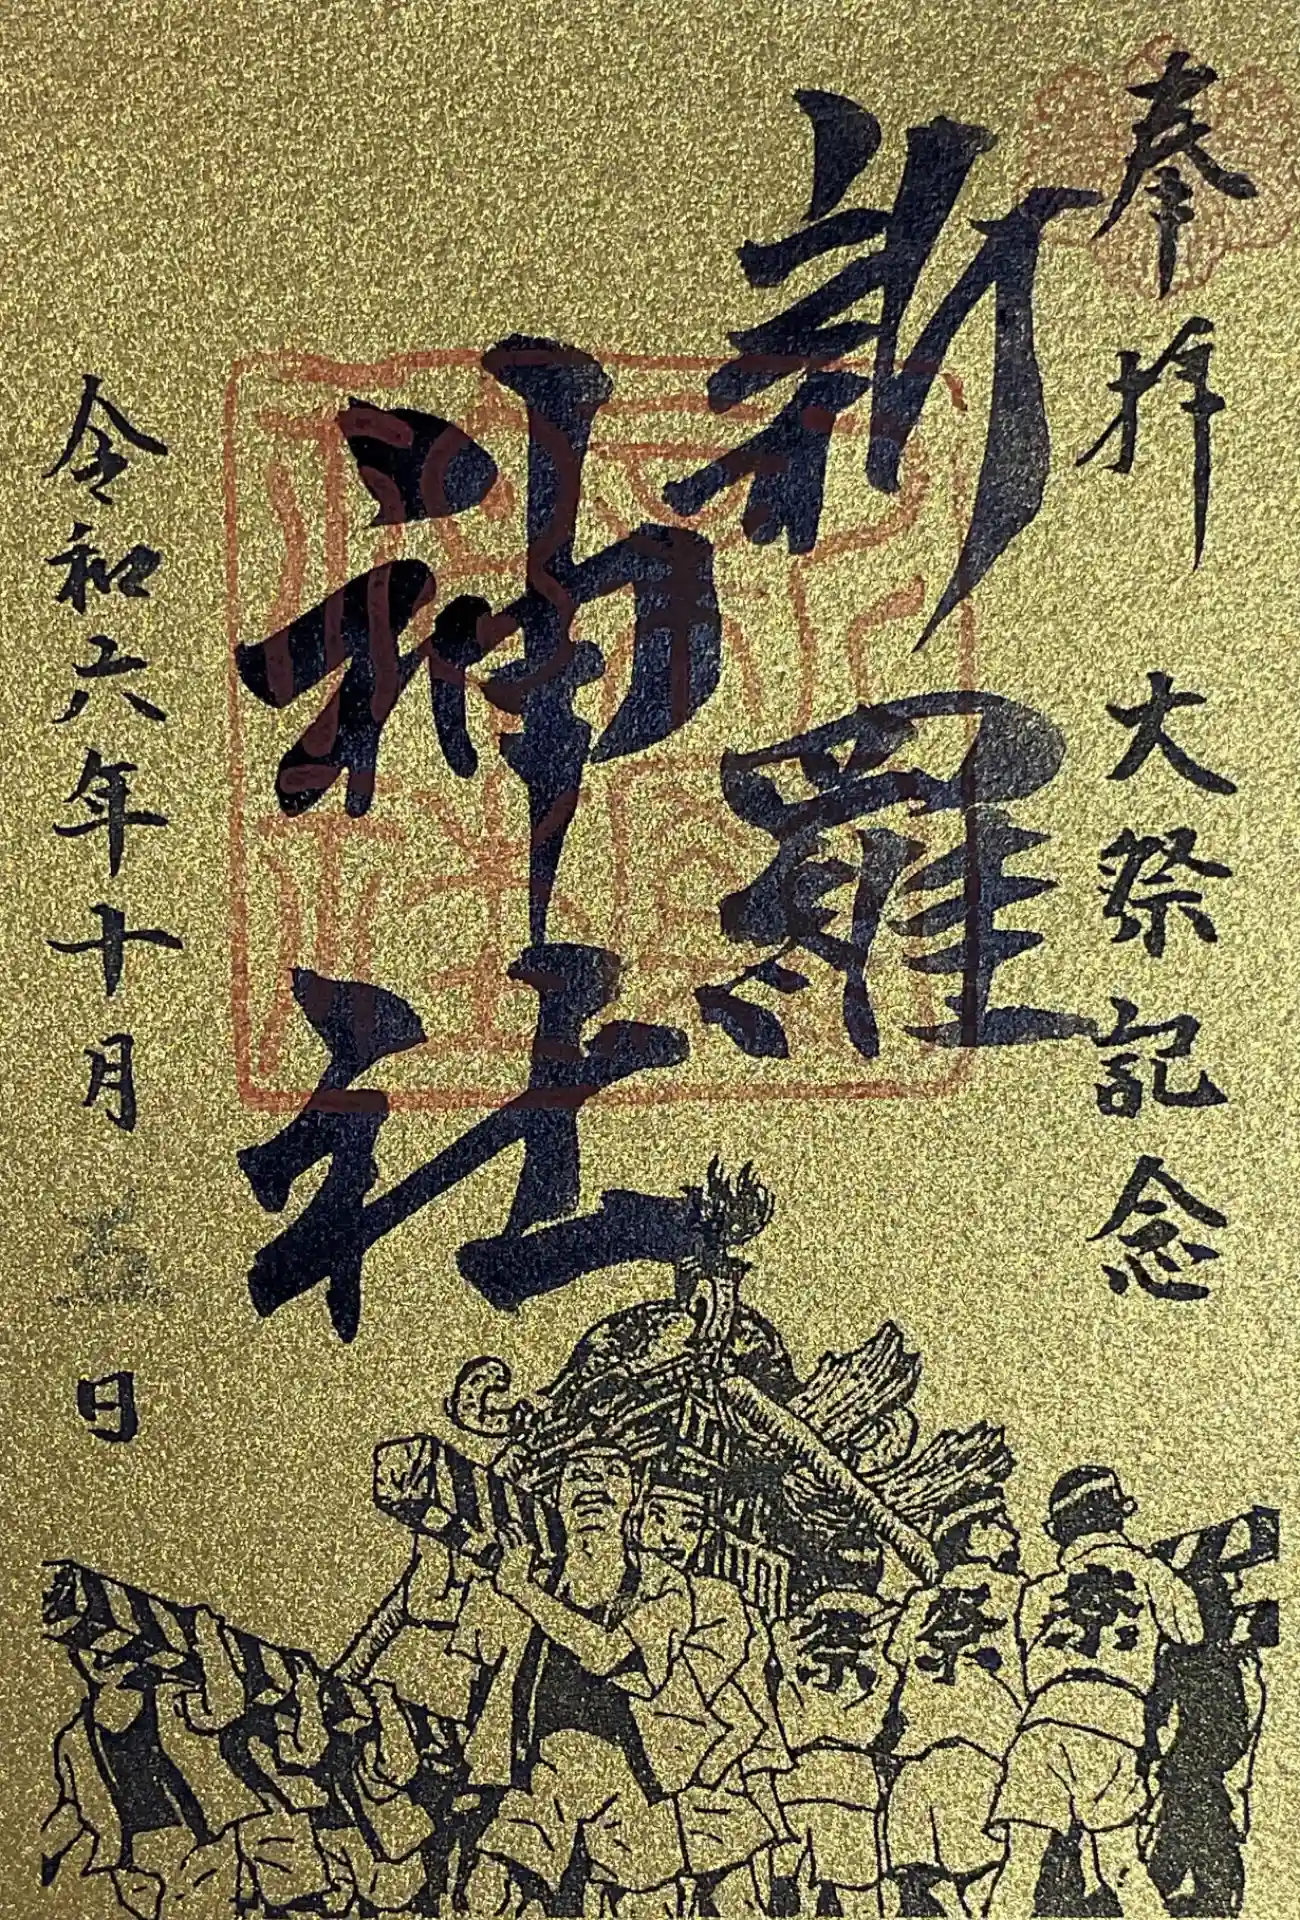 奉拝 大祭記念
新羅
神社
令和六年十月五日
祭 祭 祭